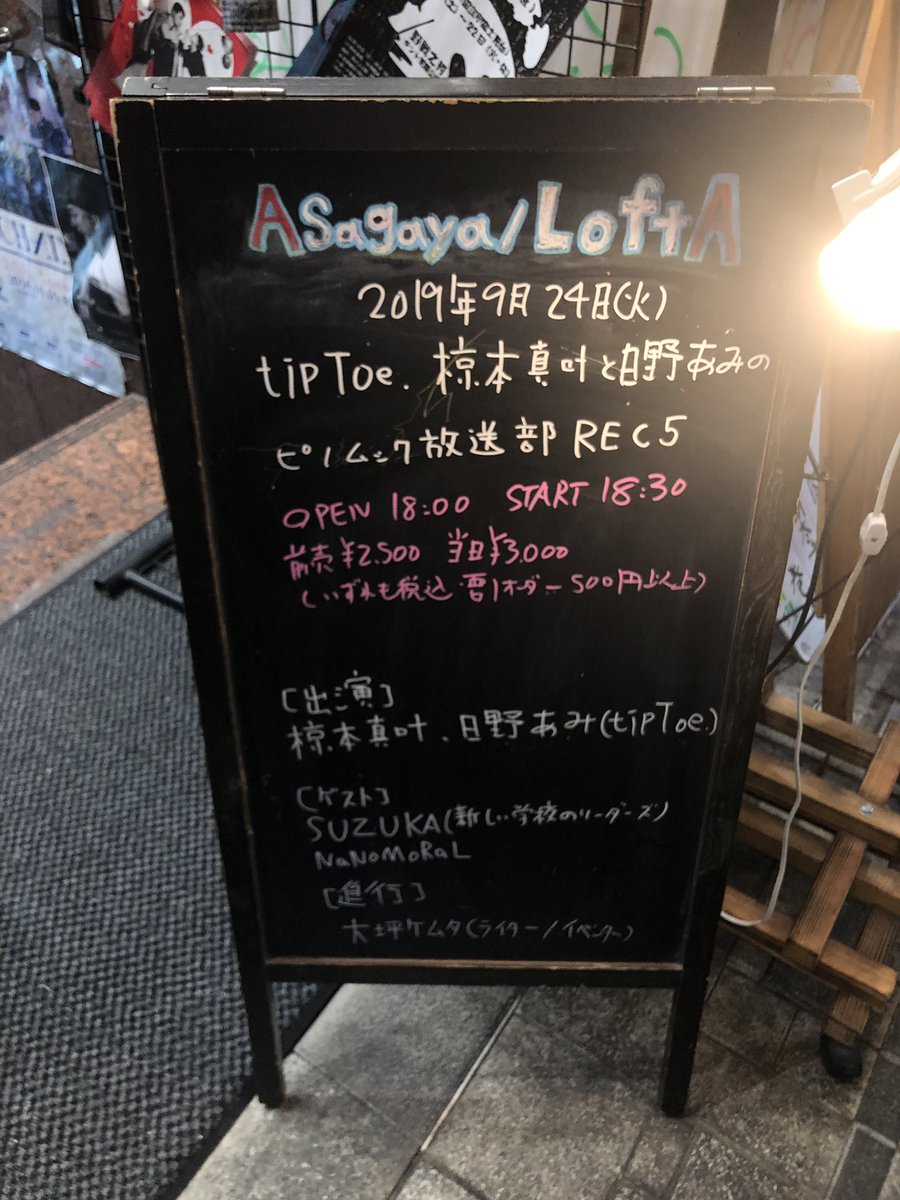 Asagaya/LoftA
2019年9月24日(火)
tipToe. 椋本真叶と日野あみの
ピノムック放送部 REC5
OPEN 18:00 START 18:30
前売¥2.500 当日¥3.000
(いずれも税込・要1オーダー500円以上)
[出演]
椋本真叶、日野あみ(tipToe.)
[ゲスト]
SUZUKA(新しい学校のリーダーズ)
NaNoMoRaL
[進行]
大坪ケムタ(ライター/イベンター)